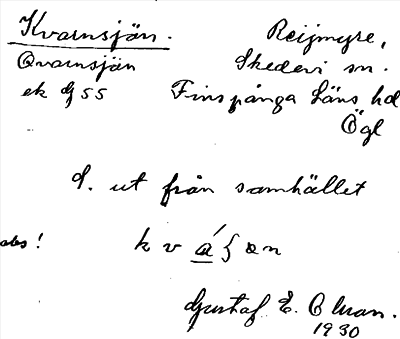 Kvarnsjön. Reijmyre,
Qvarnsjön Skedevi sn.
ek bl 55 Finspånga läns hd
Ögl
d. ut från samhället
obs! k v á ʃ ɷ n
Gustaf E. Olman.
1930